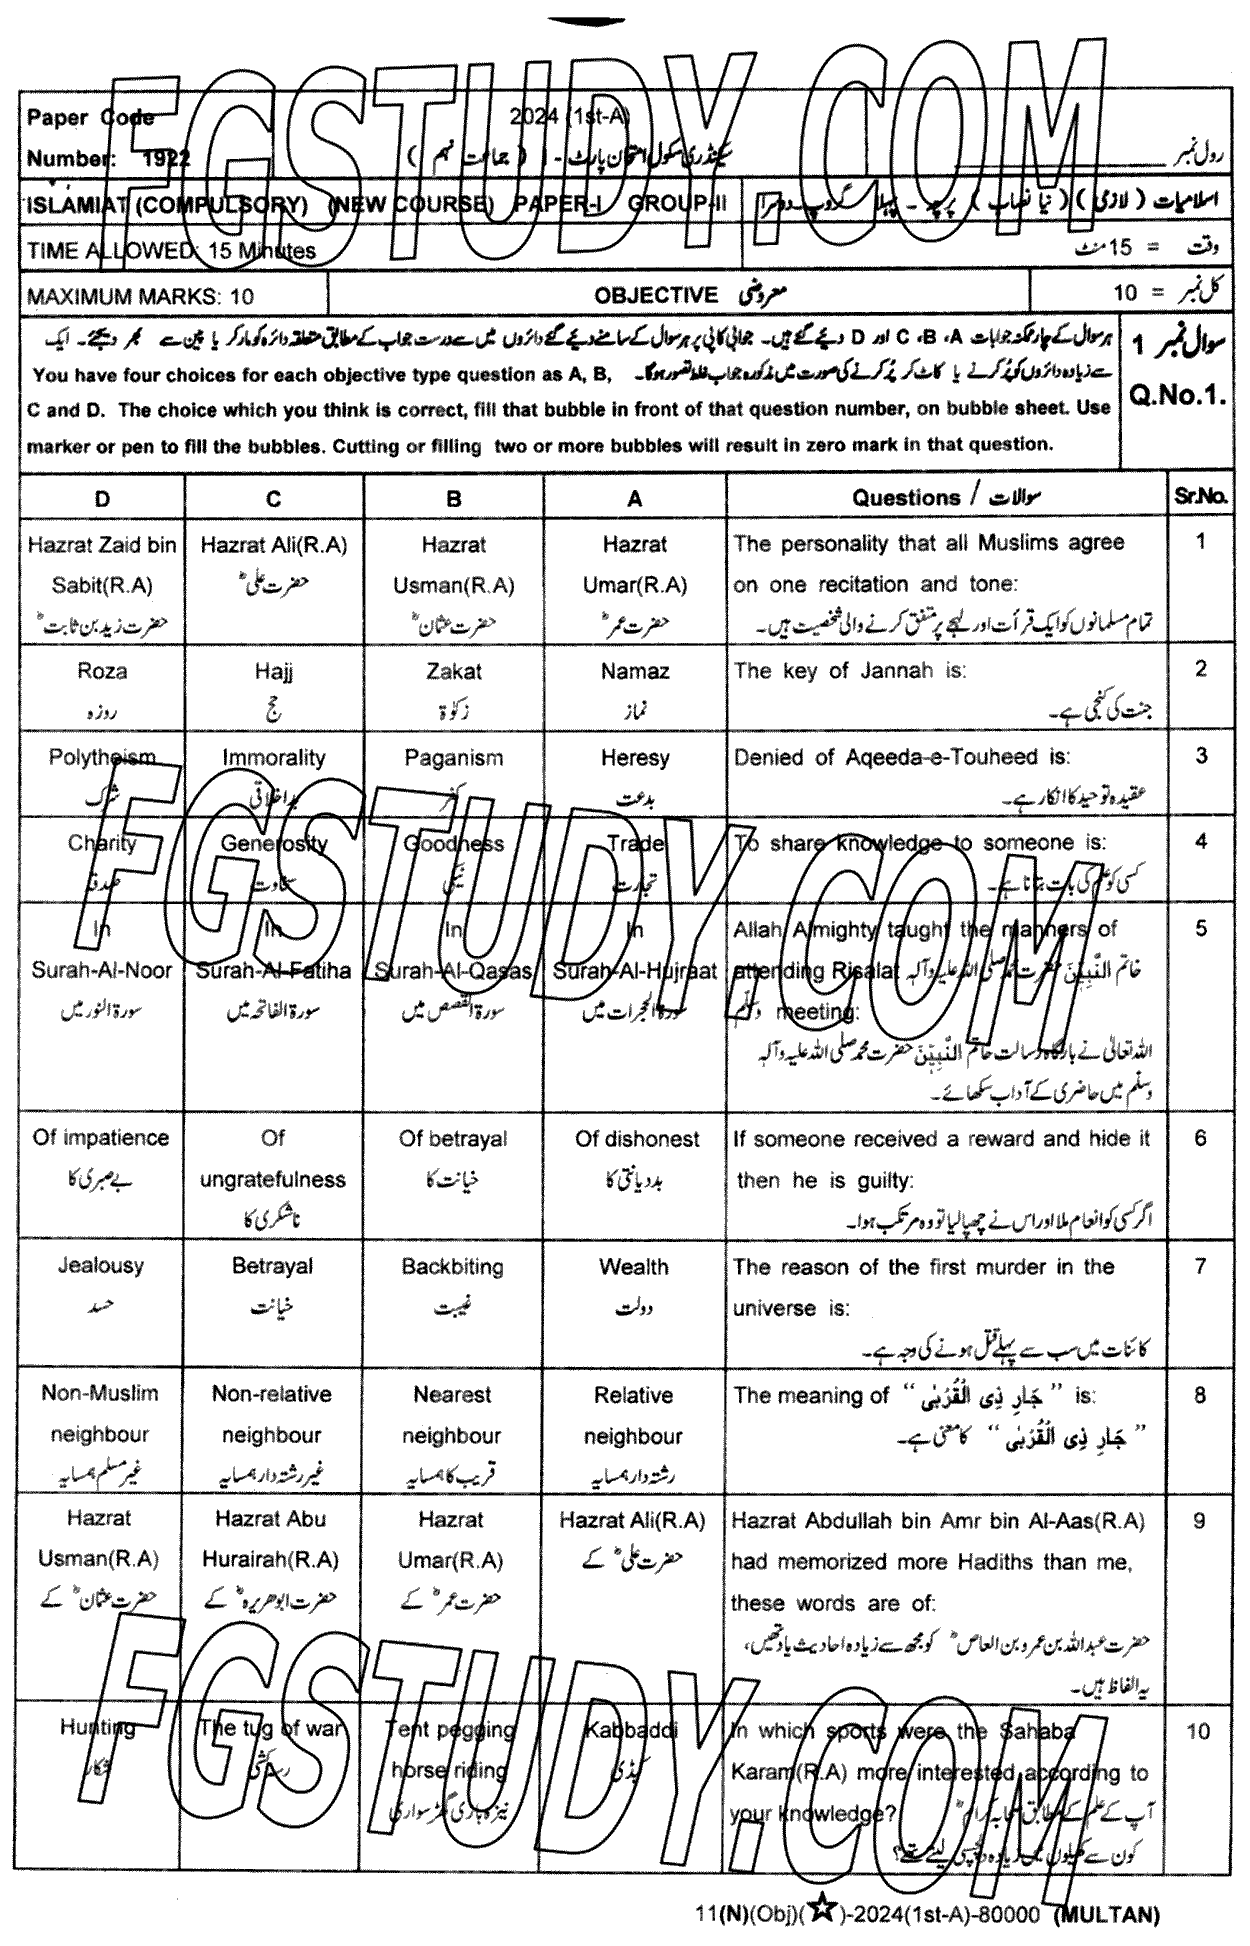 Paper Code
2024 (1st-A)
Number: 1922
سیکنڈری سکول امتحان پارٹ - I ( جماعت نہم )
رول نمبر
ISLAMIAT (COMPULSORY) (NEW COURSE) PAPER-I GROUP-II
اسلامیات ( لازمی ) ( نیا نصاب ) پرچہ - پہلا گروپ - دوسرا
TIME ALLOWED: 15 Minutes
وقت = 15 منٹ
MAXIMUM MARKS: 10
OBJECTIVE معروضی
کل نمبر = 10
سوال نمبر 1
Q.No.1.
ہر سوال کے چار ممکنہ جوابات A ،B ،C اور D دیئے گئے ہیں۔ جوابی کاپی پر ہر سوال کے سامنے دیئے گئے دائروں میں سے درست جواب کے مطابق متعلقہ دائرہ کو مارکر یا پین سے بھر دیجئے۔ ایک
سے زیادہ دائروں کو پُر کرنے یا کاٹ کر پُر کرنے کی صورت میں مذکورہ جواب غلط تصور ہوگا۔ You have four choices for each objective type question as A, B,
C and D. The choice which you think is correct, fill that bubble in front of that question number, on bubble sheet. Use
marker or pen to fill the bubbles. Cutting or filling two or more bubbles will result in zero mark in that question.
D C B A Questions / سوالات Sr.No.
1
The personality that all Muslims agree
on one recitation and tone:
تمام مسلمانوں کو ایک قرأت اور لہجے پر متفق کرنے والی شخصیت ہیں۔
Hazrat
Umar(R.A)
حضرت عمرؓ
Hazrat
Usman(R.A)
حضرت عثمانؓ
Hazrat Ali(R.A)
حضرت علیؓ
Hazrat Zaid bin
Sabit(R.A)
حضرت زید بن ثابتؓ
2
The key of Jannah is:
جنت کی کنجی ہے۔
Namaz
نماز
Zakat
زکوٰۃ
Hajj
حج
Roza
روزہ
3
Denied of Aqeeda-e-Touheed is:
عقیدہ توحید کا انکار ہے۔
Heresy
بدعت
Paganism
کفر
Immorality
بداخلاقی
Polytheism
شرک
4
To share knowledge to someone is:
کسی کو علم کی بات بتانا ہے۔
Trade
تجارت
Goodness
نیکی
Generosity
سخاوت
Charity
صدقہ
5
Allah Almighty taught the manners of
attending Risalat خاتم النَّبِیّٖنَ حضرت محمد صلی اللہ علیہ وآلہ
وسلّم meeting:
اللہ تعالیٰ نے بارگاہ رسالت خاتم النَّبِیّٖنَ حضرت محمد صلی اللہ علیہ وآلہ
وسلّم میں حاضری کے آداب سکھائے۔
In
Surah-Al-Hujraat
سورۃ الحجرات میں
In
Surah-Al-Qasas
سورۃ القصص میں
In
Surah-Al-Fatiha
سورۃ الفاتحہ میں
In
Surah-Al-Noor
سورۃ النور میں
6
If someone received a reward and hide it
then he is guilty:
اگر کسی کو انعام ملا اور اس نے چھپا لیا تو وہ مرتکب ہوا۔
Of dishonest
بددیانتی کا
Of betrayal
خیانت کا
Of
ungratefulness
ناشکری کا
Of impatience
بے صبری کا
7
The reason of the first murder in the
universe is:
کائنات میں سب سے پہلے قتل ہونے کی وجہ ہے۔
Wealth
دولت
Backbiting
غیبت
Betrayal
خیانت
Jealousy
حسد
8
The meaning of “ جَارِ ذِی الْقُرْبٰی ” is:
“ جَارِ ذِی الْقُرْبٰی ” کا معنی ہے۔
Relative
neighbour
رشتہ دار ہمسایہ
Nearest
neighbour
قریب کا ہمسایہ
Non-relative
neighbour
غیر رشتہ دار ہمسایہ
Non-Muslim
neighbour
غیر مسلم ہمسایہ
9
Hazrat Abdullah bin Amr bin Al-Aas(R.A)
had memorized more Hadiths than me,
these words are of:
حضرت عبداللہ بن عمرو بن العاصؓ کو مجھ سے زیادہ احادیث یاد تھیں،
یہ الفاظ ہیں۔
Hazrat Ali(R.A)
حضرت علیؓ کے
Hazrat
Umar(R.A)
حضرت عمرؓ کے
Hazrat Abu
Hurairah(R.A)
حضرت ابوھریرہؓ کے
Hazrat
Usman(R.A)
حضرت عثمانؓ کے
10
In which sports were the Sahaba
Karam(R.A) more interested according to
your knowledge? آپ کے علم کے مطابق صحابہ کرامؓ
کون سے کھیلوں میں زیادہ دلچسپی لیتے تھے؟
Kabbaddi
کبڈی
Tent pegging
horse riding
نیزہ بازی گھڑ سواری
The tug of war
رسہ کشی
Hunting
شکار
11(N)(Obj)(☆)-2024(1st-A)-80000 (MULTAN)
FGSTUDY.COM
FGSTUDY.COM
FGSTUDY.COM